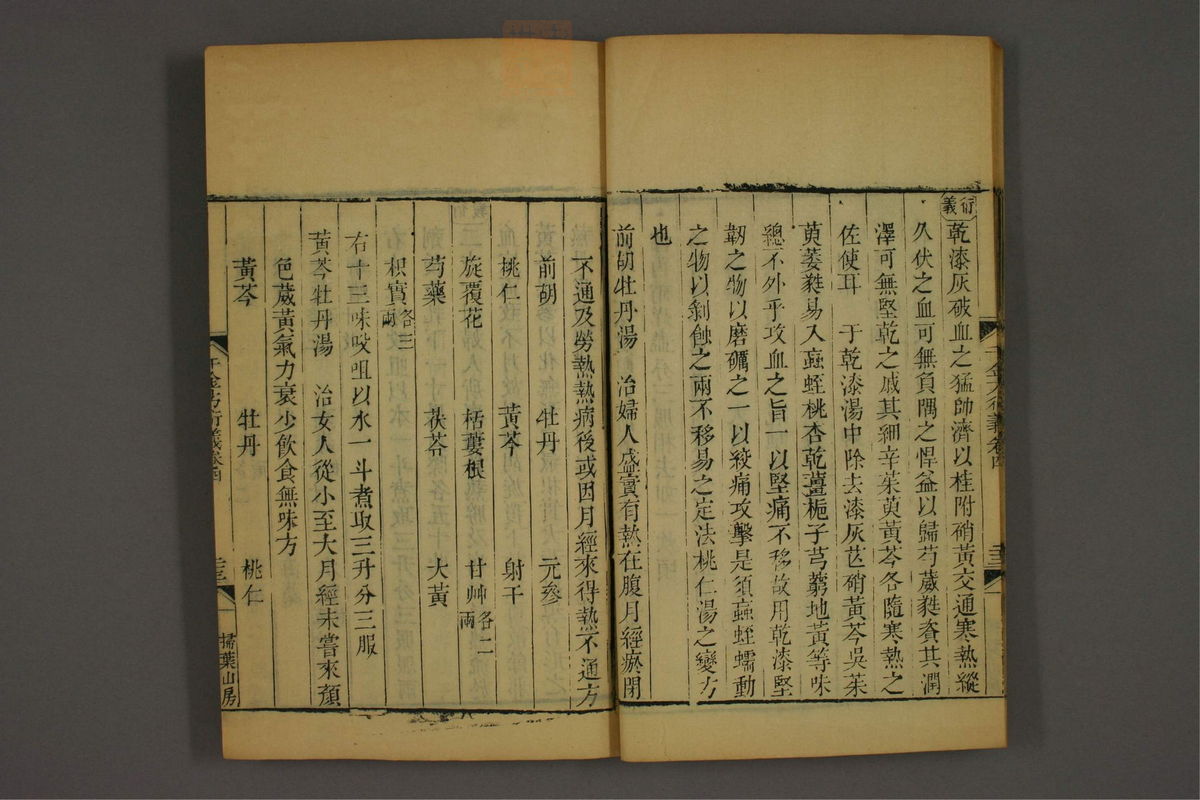 衍義
乾漆灰破血之猛帥濟以桂附硝黃交通寒熱縱
久伏之血可無負隅之悍益以歸芍葳蕤資其潤
澤可無堅乾之戚其細辛茱萸黃芩各隨寒熱之
佐使耳　于乾漆湯中除去漆灰芒硝黃芩吳茱
萸萎蕤易入蝱蛭桃杏乾薑梔子芎藭地黃等味
總不外乎攻血之旨一以堅痛不移故用乾漆堅
韌之物以磨礪之一以絞痛攻擊是須蝱蛭蠕動
之物以剝蝕之兩不移易之定法桃仁湯之變方
也
前胡牡丹湯　治婦人盛實有熱在腹月經瘀閉
千金方衍義卷四
不通及勞熱熱病後或因月經來得熱不通方
前胡　牡丹　元參
桃仁　黃芩　射干
旋覆花　栝蔞根　甘艸各二兩
芍藥　茯苓　大黃
枳實各三兩
右十三味㕮咀以水一斗煮取三升分三服
黃芩牡丹湯　治女人從小至大月經未嘗來顏
色萎黃氣力衰少飲食無味方
黃芩　牡丹　桃仁
千金方衍義卷四
掃葉山房